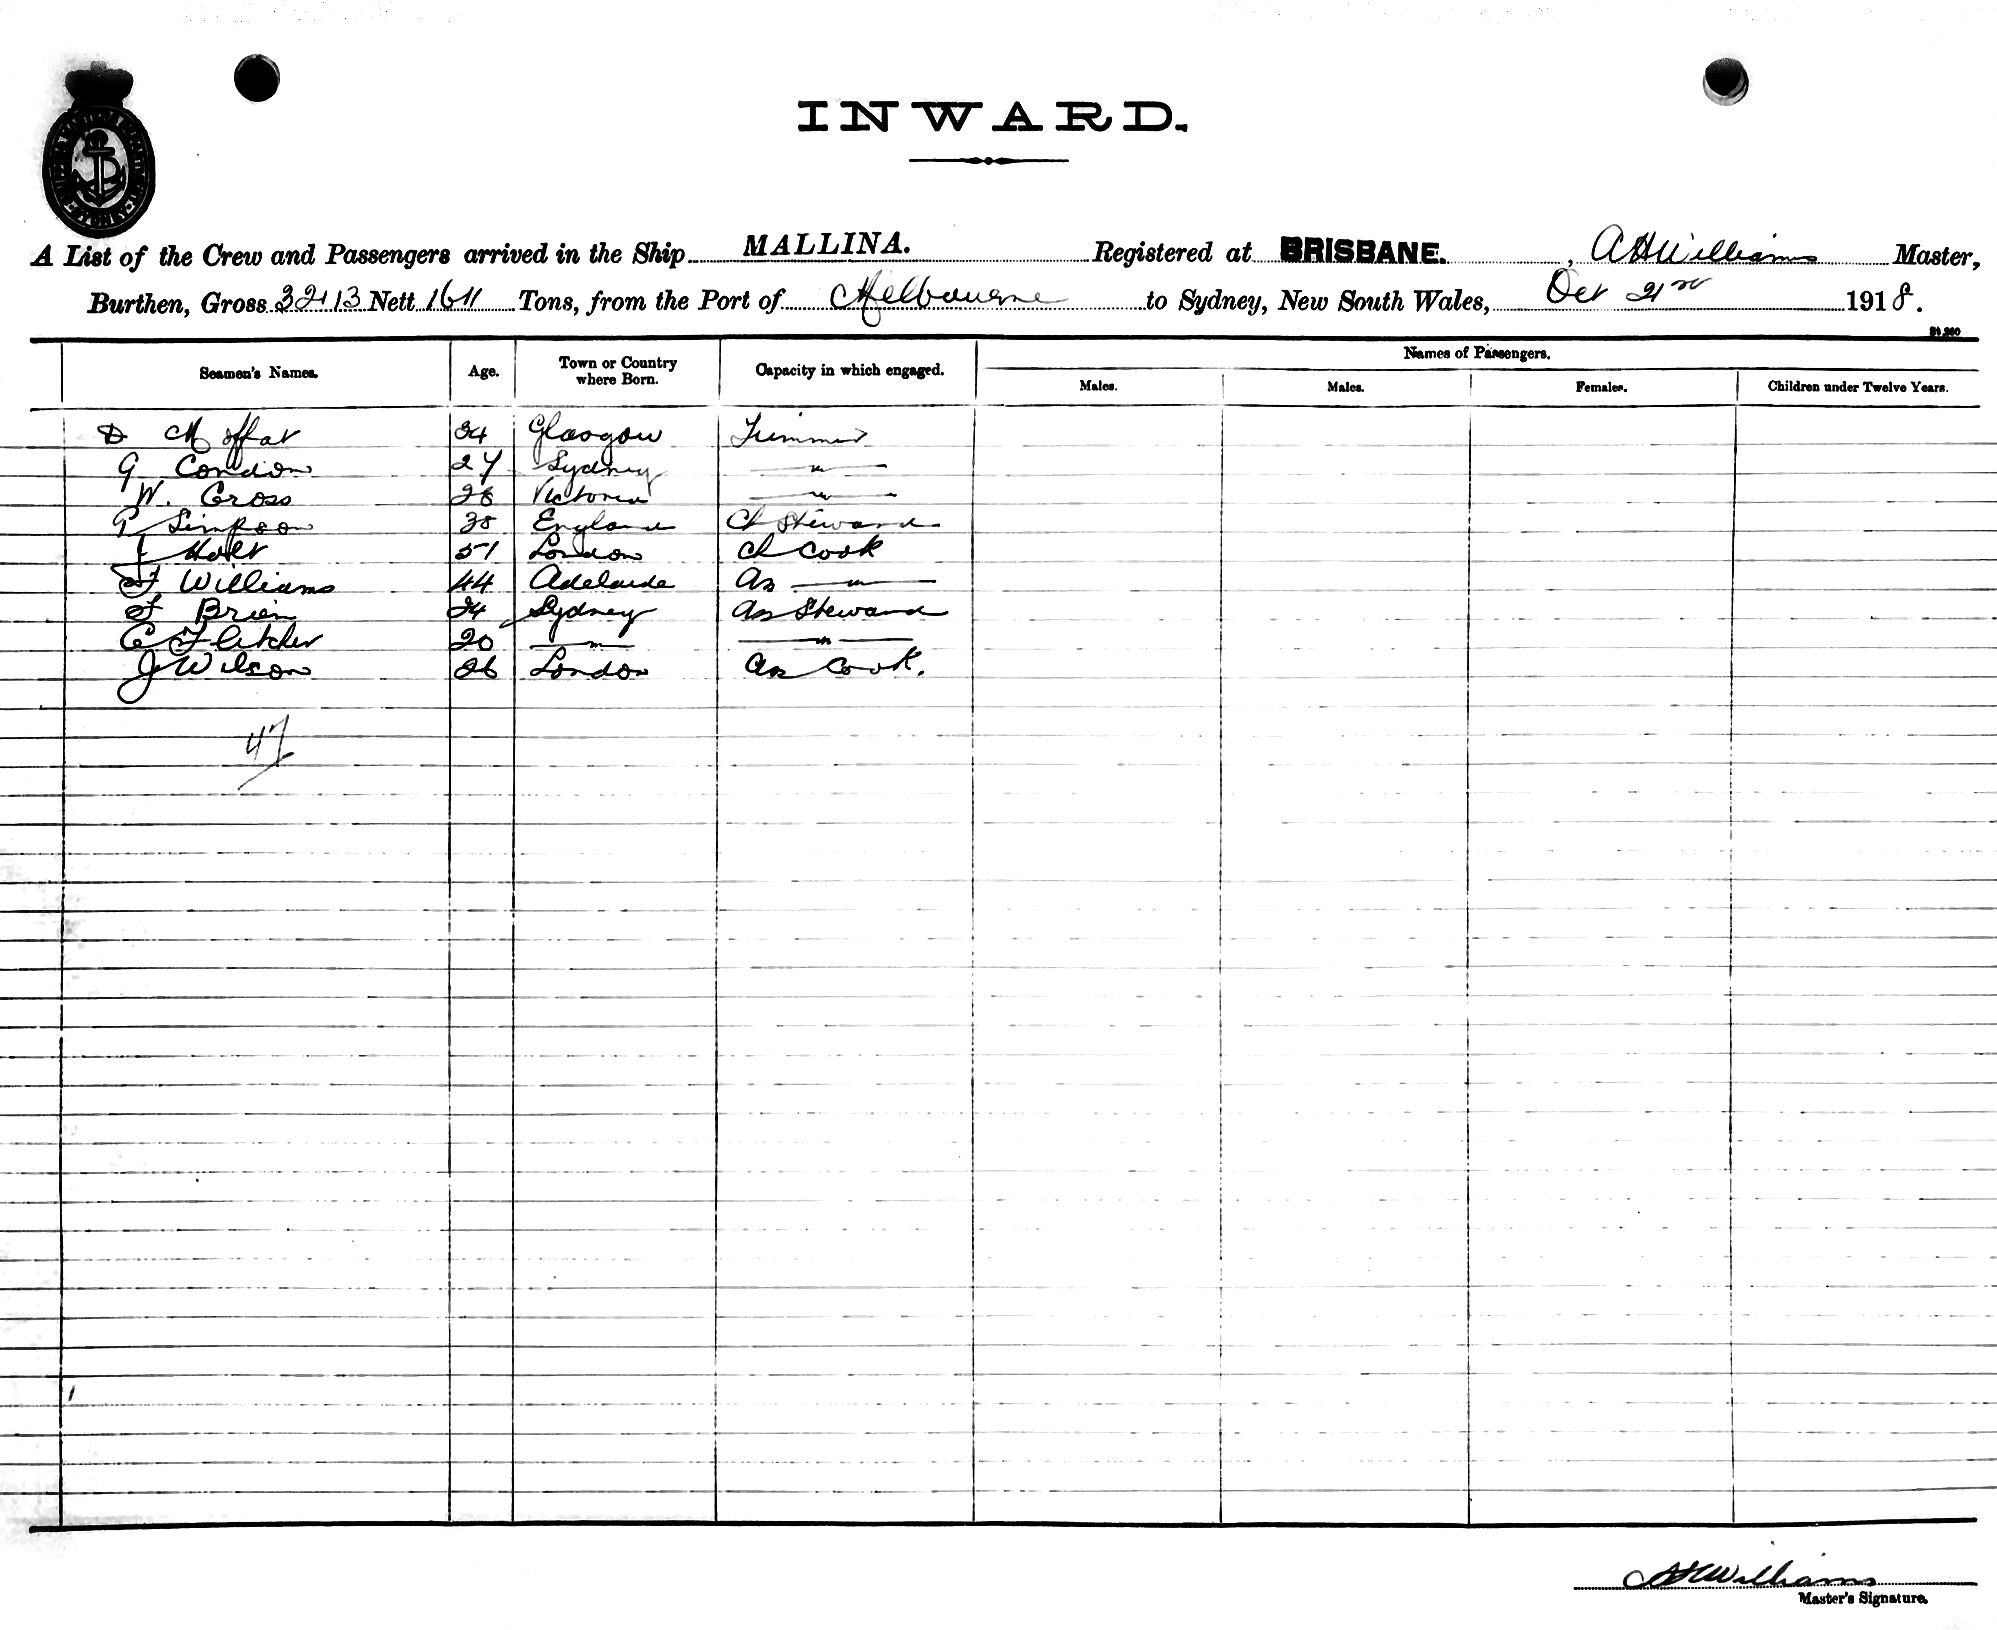 INWARD.
SYDNEY
A List of the Crew and Passengers arrived in the Ship MALLINA. Registered at BRISBANE. , A H Williams Master,
Burthen, Gross 3213 Nett 1611 Tons, from the Port of Melbourne to Sydney, New South Wales, Oct 21st 1918.
Names of Passengers.
Seamen's Names. Age. Town or Country where Born. Capacity in which engaged. Males. Males. Females. Children under Twelve Years.
D Moffat 34 Glasgow Trimmer
G Condon 27 Sydney — " —
W. Cross 28 Victoria — " —
Simpson 38 England Ch Steward
Holt 51 London Ch Cook
F Williams 44 Adelaide As — " —
F Brien 24 Sydney As Steward
C Fletcher 20 — " — — " —
J Wilson 26 London As Cook.
47
A H Williams
Master's Signature.